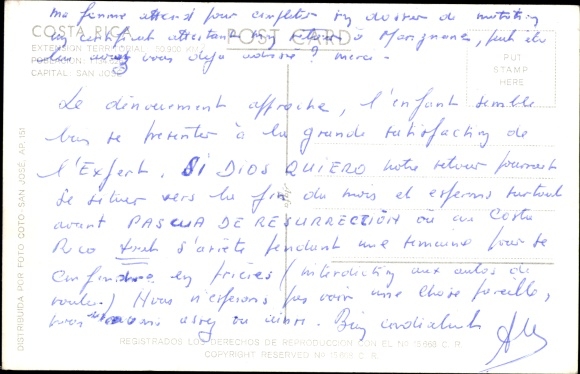 ma femme attend pour compléter son dossier de mutation
un certificat attestant son retour à Marignane, peut être
leur avez vous déjà adressé ? merci.
COSTA RICA
EXTENSION TERRITORIAL: 50.900 KM
CAPITAL: SAN JOSE
POST CARD
PUT
STAMP
HERE
Le dénouement approche, l'enfant semble
bien se présenter à la grande satisfaction de
l'Expert. SI DIOS QUIERO notre retour pourrait
se situer vers la fin du mois et espérons surtout
avant PASCUA DE RESURRECCIÓN où au Costa
Rica tout s'arrête pendant une semaine pour se
confondre en prières (interdiction aux autos de
rouler.) Nous n'espérons pas voir une chose pareille,
nous assez Bien cordialement
DISTRIBUIDA POR FOTO GOTO-SAN JOSÉ, AP. 151
REGISTRADOS LOS DERECHOS DE REPRODUCCION CON EL Nº 15668 C. R.
COPYRIGHT RESERVED Nº 15668 C. R.